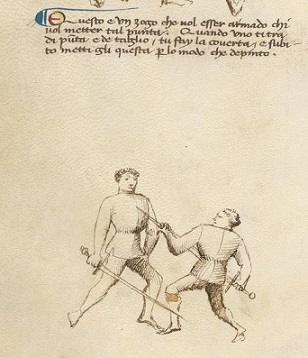 Questo e un zogo che vol esser armado chi
vol metter tal punta. Quando uno ti tra
di punta e de taglio, tu fay la coverta, e subi-
to metti gli questa per lo modo che depinto.